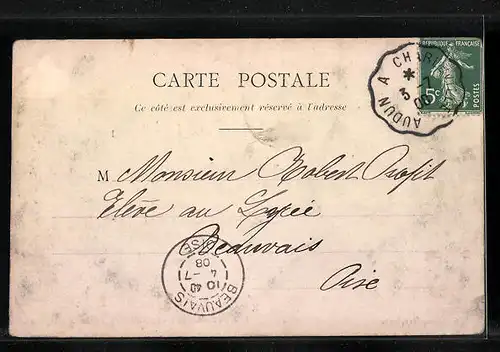 CARTE POSTALE
Ce côté est exclusivement réservé à l'adresse
REPUBLIQUE FRANÇAISE
5c
POSTES
AUDUN A CHAR
*
3 -7
08
M Monsieur Robert Profit
Elève au Lycée
Beauvais
Oise
BEAUVAIS
10 40
4 -7
08
OISE